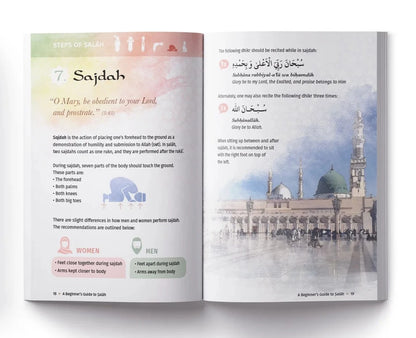 STEPS OF SALĀH
7. Sajdah
"O Mary, be obedient to your Lord,
and prostrate." (3:43)
Sajdah is the action of placing one's forehead to the ground as a
demonstration of humility and submission to Allah (swt). In salāh,
two sajdahs count as one rukn, and they are performed after the rukūʿ.
During sajdah, seven parts of the body should touch the ground.
These parts are:
• The forehead
• Both palms
• Both knees
• Both big toes
There are slight differences in how men and women perform sajdah.
The recommendations are outlined below:
WOMEN
• Feet close together during sajdah
• Arms kept closer to body
MEN
• Feet apart during sajdah
• Arms away from body
18 — A Beginner's Guide to Salāh
The following dhikr should be recited while in sajdah:
سُبْحَانَ رَبِّيَ الْأَعْلَىٰ وَ بِحَمْدِهِ
Subhāna rabbiyal-aʿlā wa bihamdih
Glory be to my Lord, the Exalted, and praise belongs to Him
Alternately, one may also recite the following dhikr three times:
سُبْحَانَ الله
Subhānallāh.
Glory be to Allah.
After sitting up between and after
sajdah, it is recommended to sit
with the right foot on top of
the left.
A Beginner's Guide to Salāh — 19